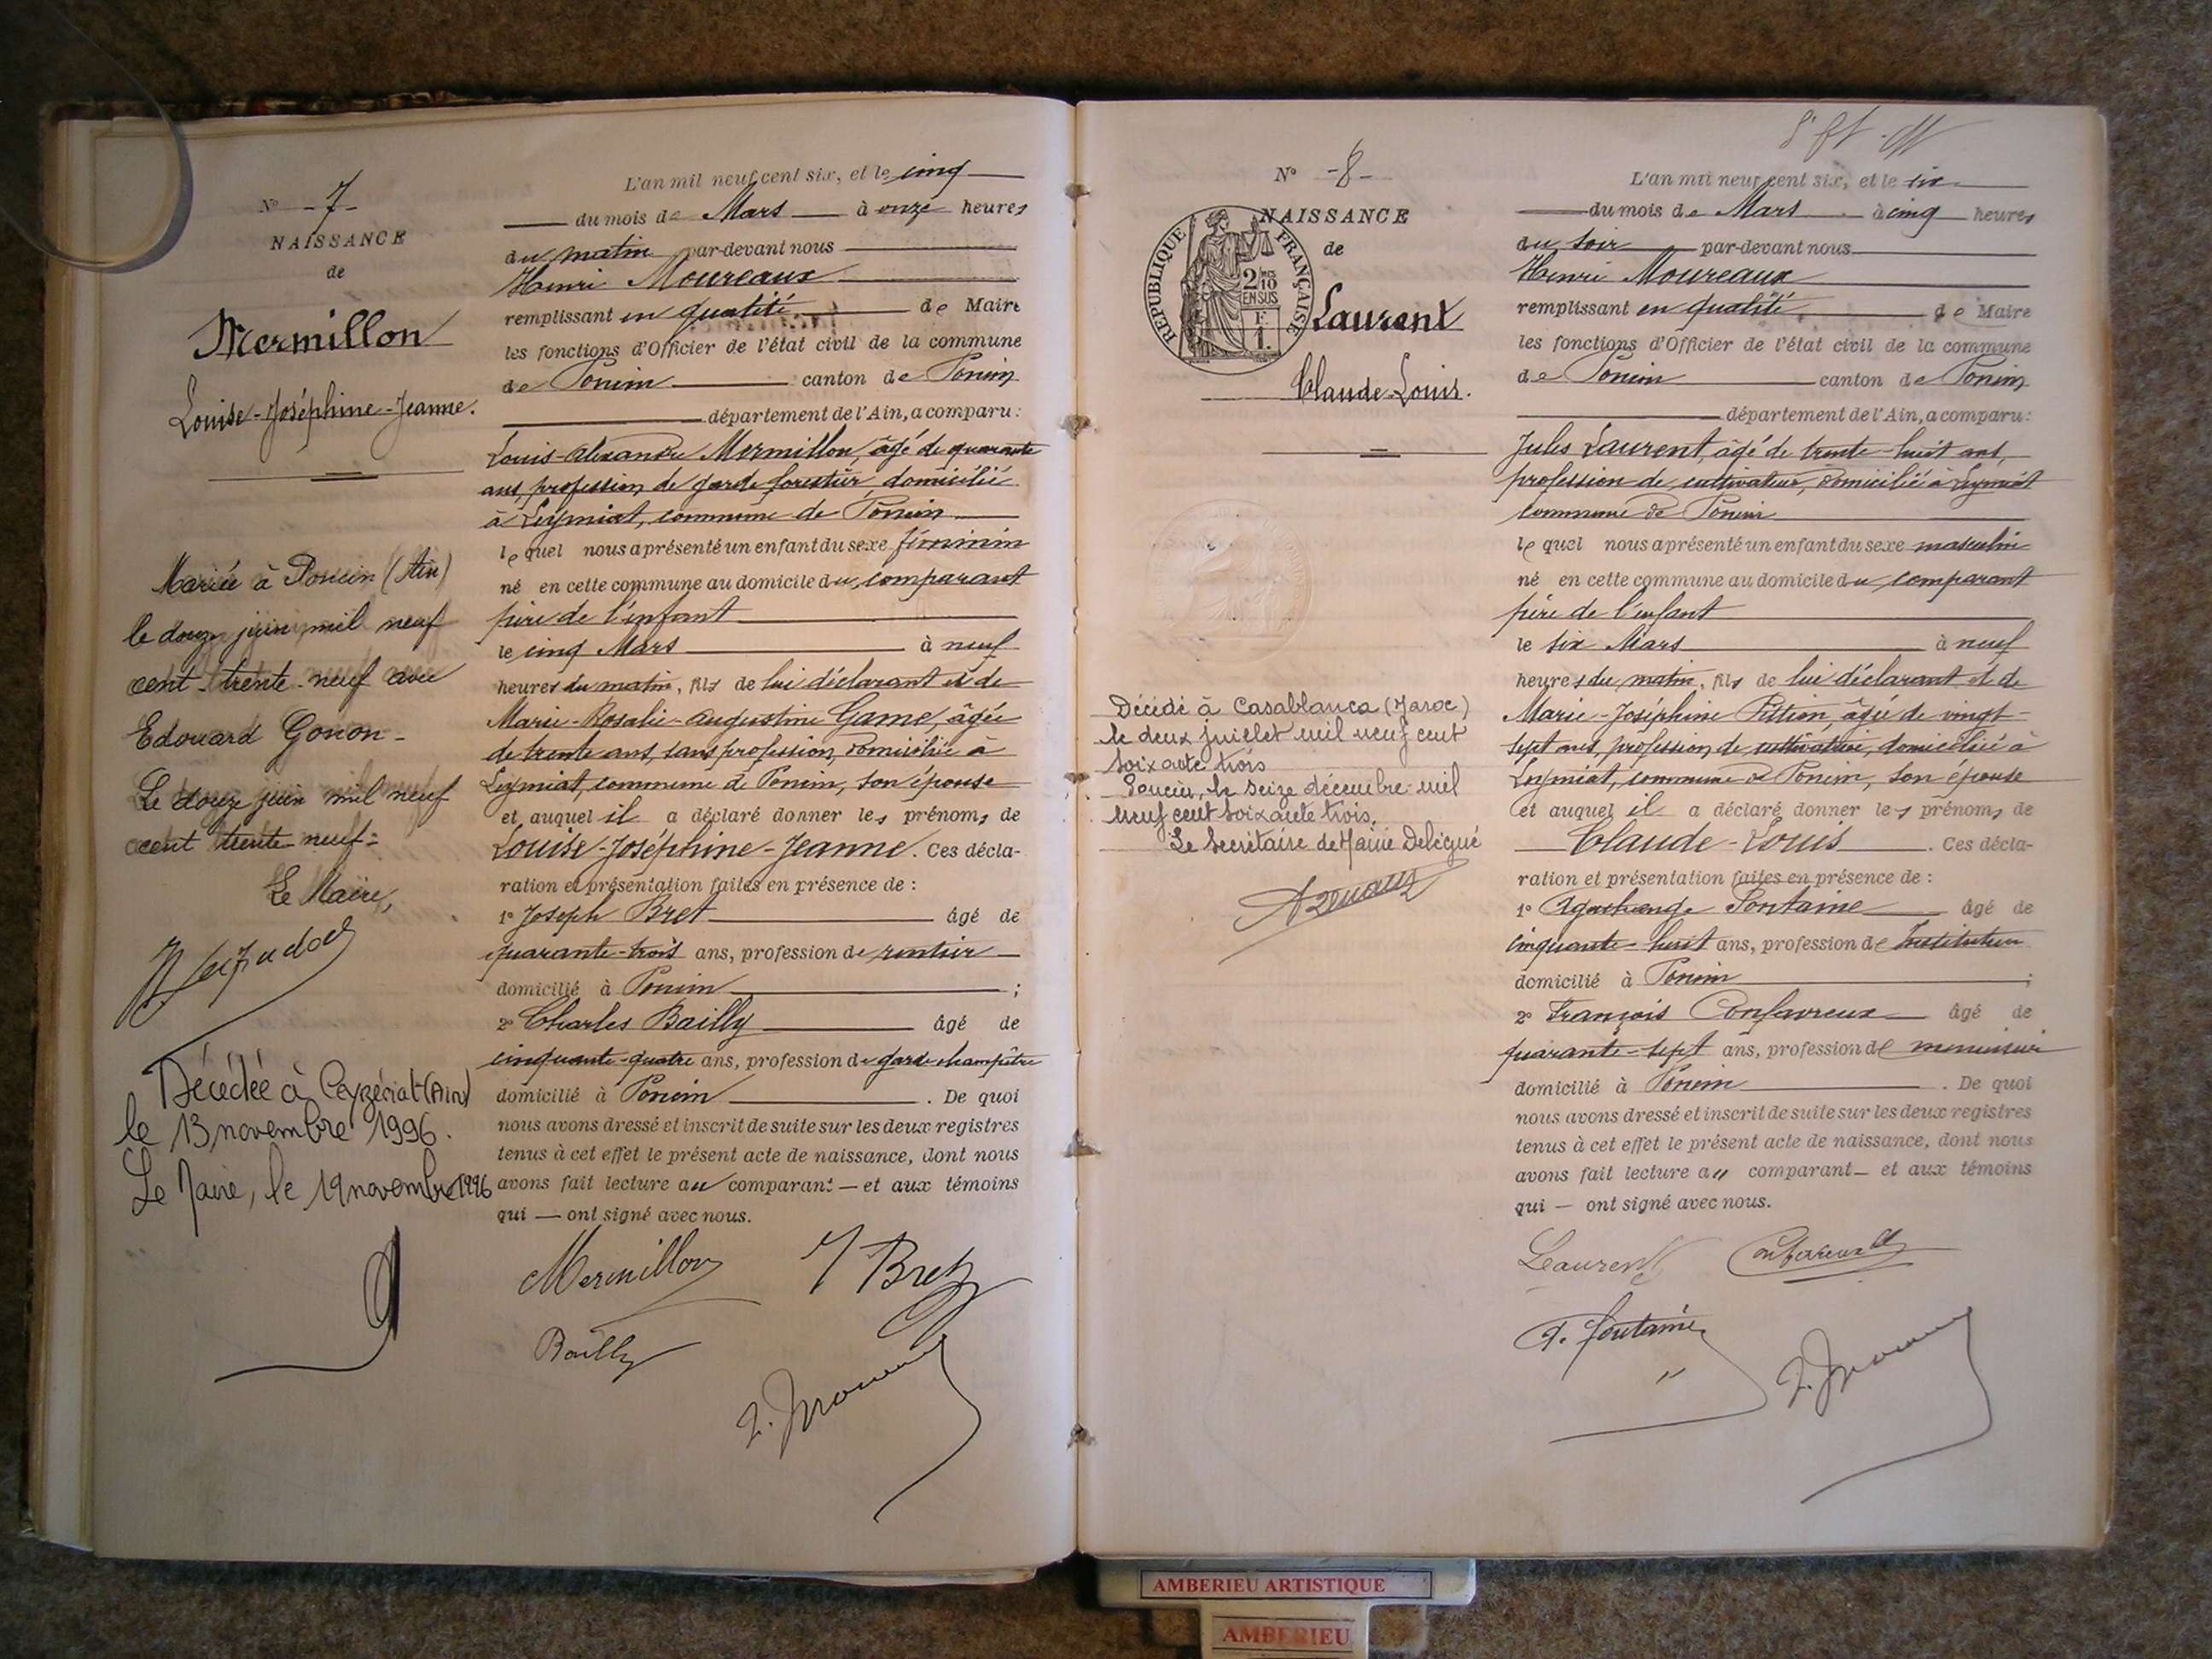 N° -7-
NAISSANCE
de
Mermillon
Louise-Joséphine-Jeanne.
Mariée à Poncin (Ain)
le douze juin mil neuf
cent trente-neuf avec
Edouard Gonon-
Le douze juin mil neuf
cent trente-neuf=
Le Maire,
Décédée à Ceyzériat (Ain)
le 13 novembre 1996.
Le Maire, le 19 novembre 1996
L'an mil neuf cent six, et le cinq
du mois de Mars à onze heures
du matin par-devant nous
Henri Moureaux
remplissant en qualité de Maire
les fonctions d'Officier de l'état civil de la commune
de Poncin canton de Poncin
département de l'Ain, a comparu:
Louis-Alexandre Mermillon, âgé de quarante
ans, profession de garde forestier domicilié
à Leymiat, commune de Poncin
lequel nous a présenté un enfant du sexe féminin
né en cette commune au domicile du comparant
père de l'enfant
le cinq Mars à neuf
heures du matin, fils de lui déclarant et de
Marie-Rosalie-Augustine Game, âgée
de trente ans, sans profession, domiciliée à
Leymiat, commune de Poncin, son épouse
et auquel il a déclaré donner les prénoms de
Louise-Joséphine-Jeanne. Ces décla-
ration et présentation faites en présence de :
1° Joseph Bret âgé de
quarante-trois ans, profession de rentier
domicilié à Poncin ;
2° Charles Bailly âgé de
cinquante-quatre ans, profession de garde-champêtre
domicilié à Poncin . De quoi
nous avons dressé et inscrit de suite sur les deux registres
tenus à cet effet le présent acte de naissance, dont nous
avons fait lecture au comparant — et aux témoins
qui — ont signé avec nous.
Mermillon J Bret
Bailly
N° -8-
NAISSANCE
de
RÉPUBLIQUE FRANÇAISE
2/10 EN SUS
F. 1.
Laurent
Claude-Louis.
Décédé à Casablanca (Maroc)
le deux juillet mil neuf cent
soixante trois
Poncin, le seize décembre mil
neuf cent soixante trois.
Le Secrétaire de Mairie Délégué
L'an mil neuf cent six, et le six
du mois de Mars à cinq heures
du soir par-devant nous
Henri Moureaux
remplissant en qualité de Maire
les fonctions d'Officier de l'état civil de la commune
de Poncin canton de Poncin
département de l'Ain, a comparu:
Jules Laurent, âgé de trente-huit ans,
profession de cultivateur, domicilié à Leymiat
commune de Poncin
lequel nous a présenté un enfant du sexe masculin
né en cette commune au domicile du comparant
père de l'enfant
le six Mars à neuf
heures du matin, fils de lui déclarant et de
Marie-Joséphine Pittion, âgée de vingt-
sept ans, profession de cultivatrice, domiciliée à
Leymiat, commune de Poncin, son épouse
et auquel il a déclaré donner les prénoms de
Claude-Louis . Ces décla-
ration et présentation faites en présence de :
1° Fontaine âgé de
cinquante-huit ans, profession de Instituteur
domicilié à Poncin ;
2° François Confavreux âgé de
quarante-sept ans, profession de menuisier
domicilié à Poncin . De quoi
nous avons dressé et inscrit de suite sur les deux registres
tenus à cet effet le présent acte de naissance, dont nous
avons fait lecture au comparant — et aux témoins
qui — ont signé avec nous.
Laurent Confavreux
A. Fontaine
AMBERIEU ARTISTIQUE
AMBERIEU